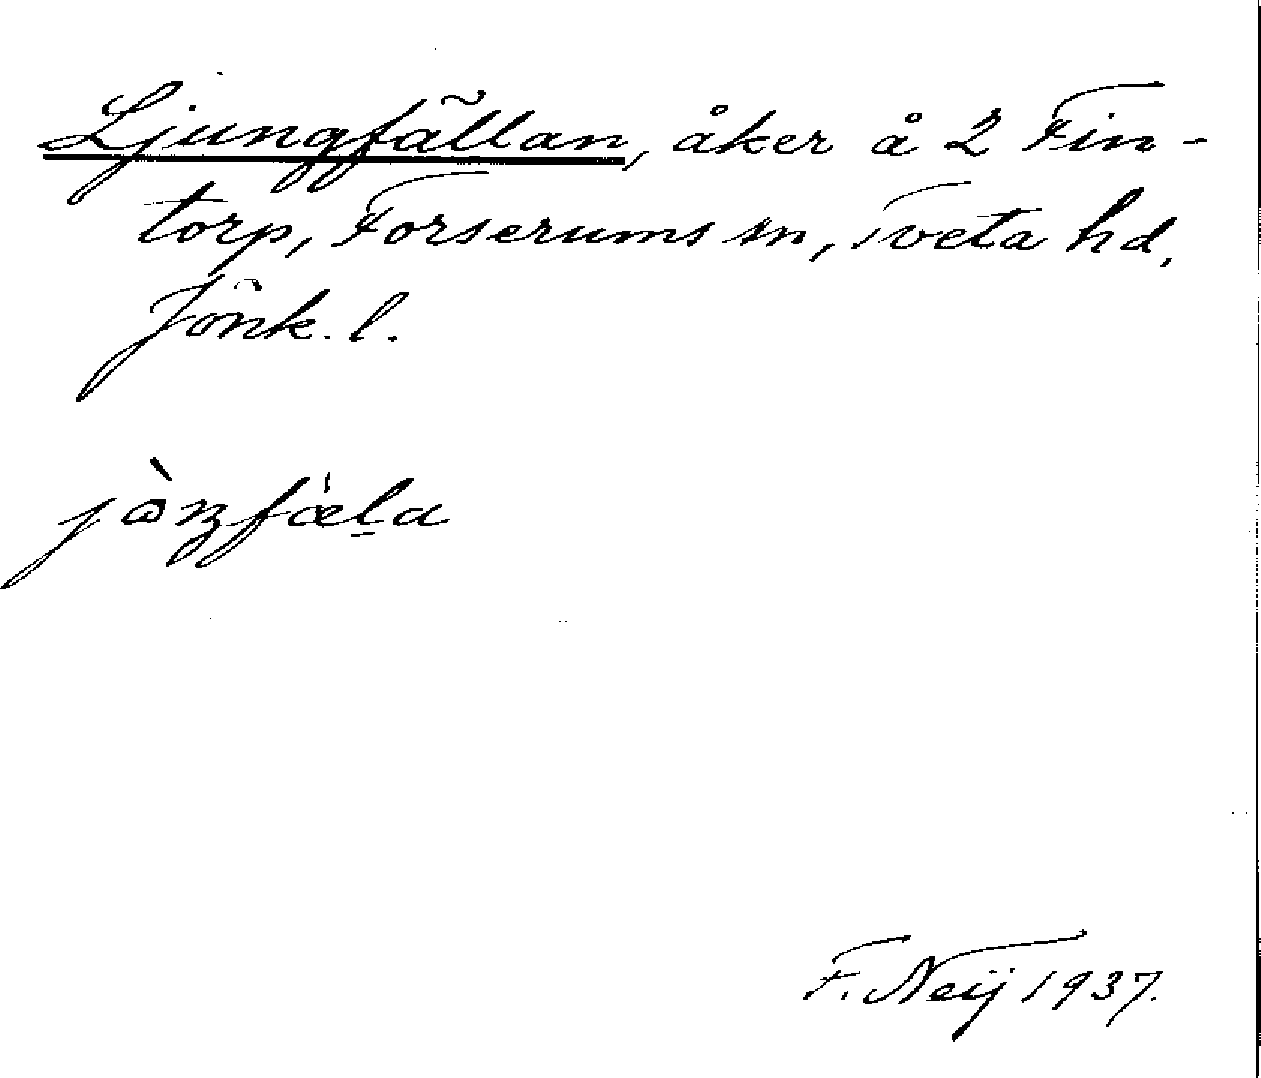 Ljungfällan, åker å 2 Fin-
torp, Forserums sn, Tveta hd,
Jönk. l.
F. Neij 1937.